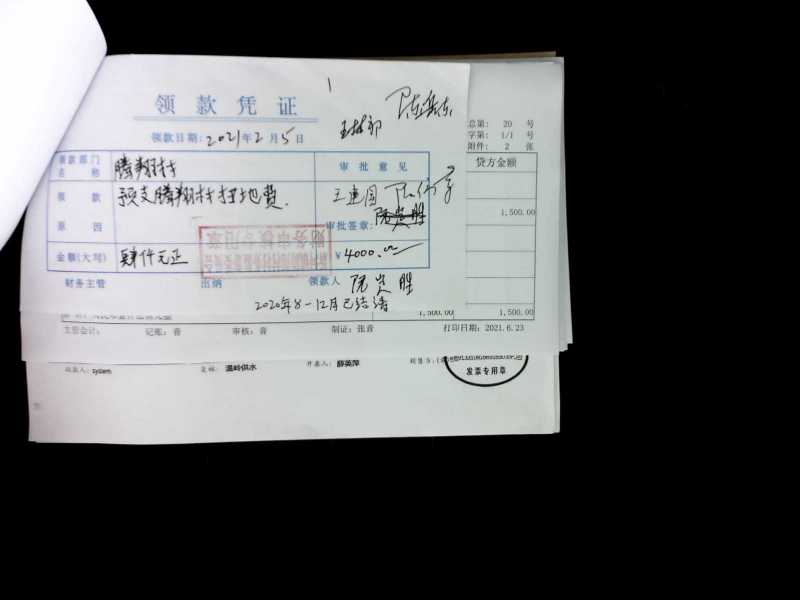 领款凭证
领款日期:2021年2月5日
总第: 20 号
字第: 1/1 号
附件: 2 张
领款部门名称
腾翔村
审批意见
贷方金额
领款原因
预支腾翔村扫地费.
王建国
审批签章:
1,500.00
金额(大写)
肆仟元正
¥4000.00
财务主管
出纳
领款人
2020年8-12月已结清
1,500.00
1,500.00
主管会计:
记账: 音
审核: 音
制证: 张音
打印日期: 2021.6.23
收款人: system
复核: 温岭供水
开票人: 薛英萍
发票专用章